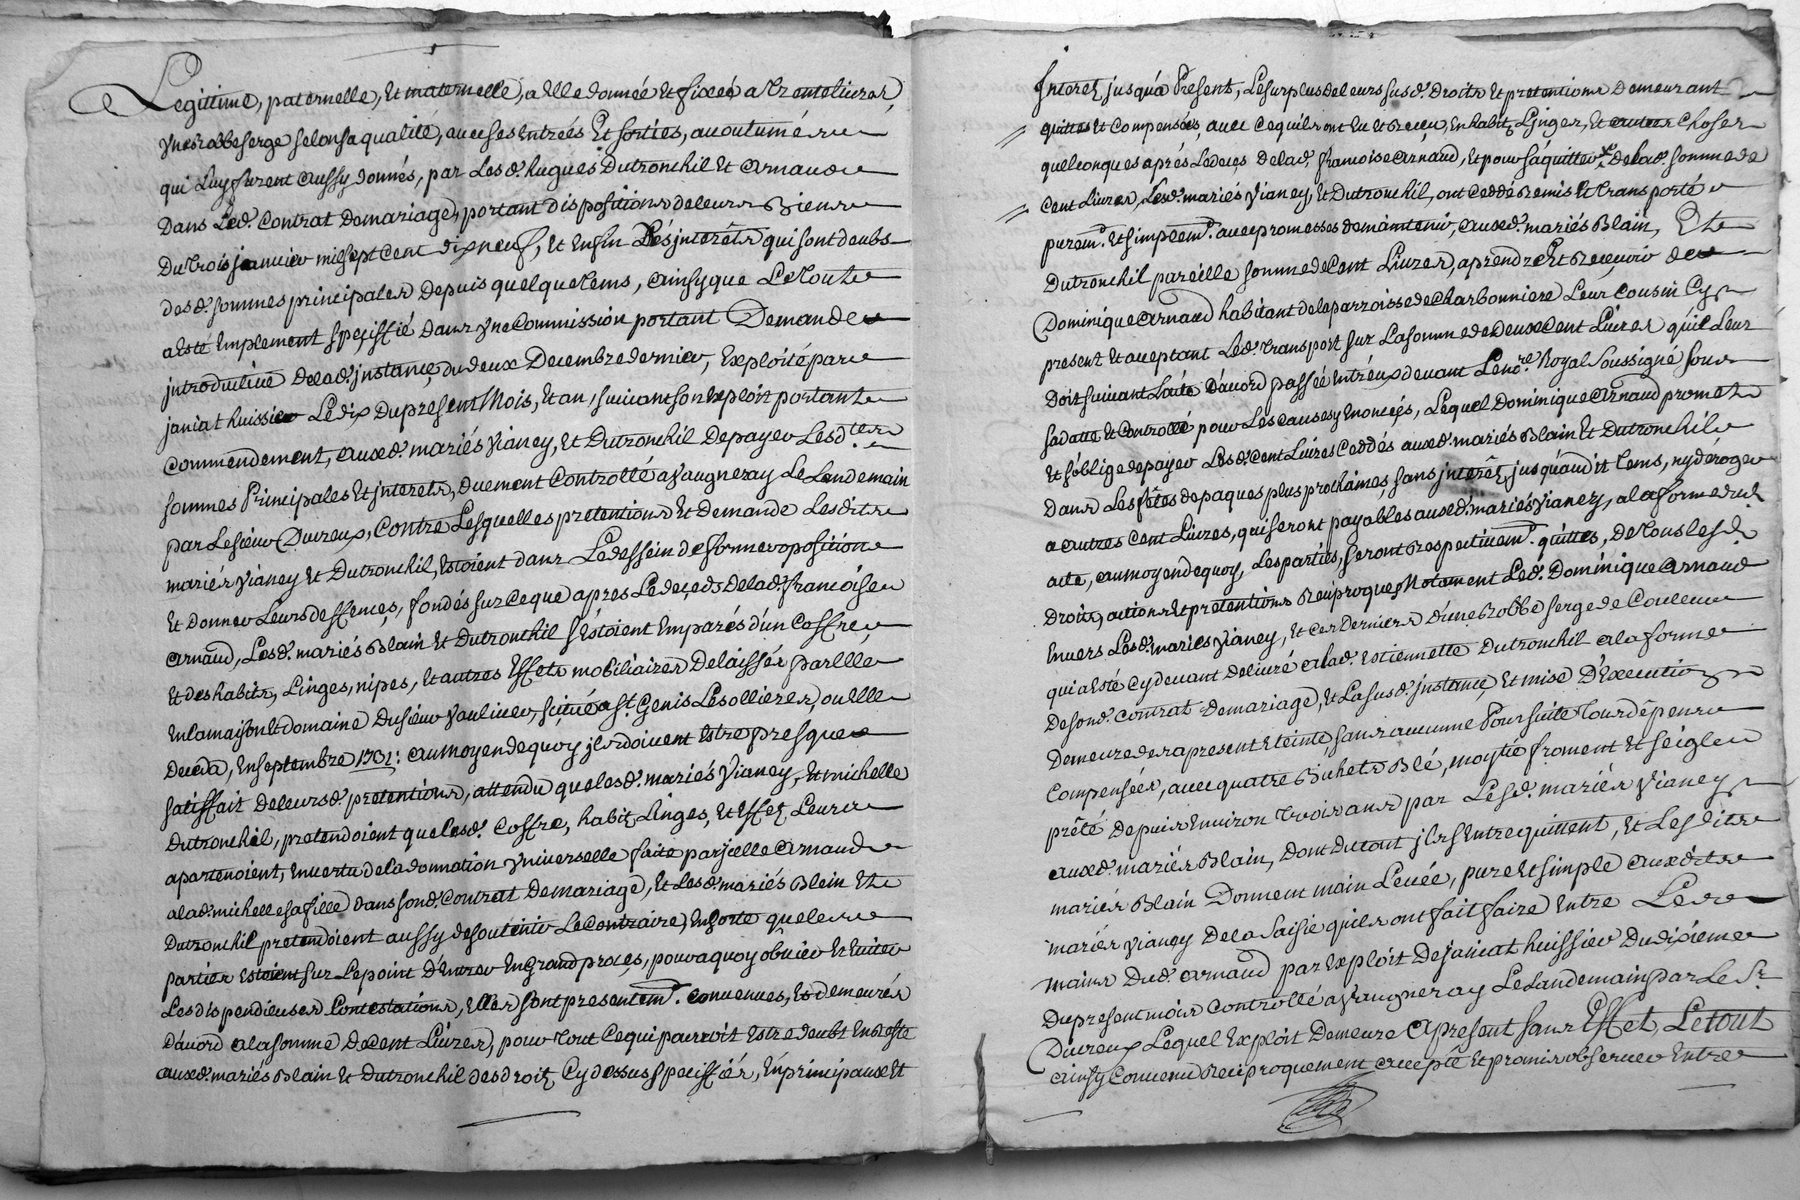 Legitime, paternelle, et maternelle, a Elle donnée et fixée a trente livres,
une robbe serge selon sa qualité, avec ses entrées Et sorties, accoutumées
qui luy furent aussy donnés, par Lesd. hugues Dutronchil Et arnaud
Dans Led. Contrat de mariage, portant dispositions de leurs Biens
Du trois janvier mil sept cent dix neuf, et Enfin Les interêts qui sont deubs
desd. sommes principales Depuis quelque tems, ainsy que Le tout
a esté Emplement speciffié dans une Commission portant Demande
introductive de lad. instance, du deux Decembre dernier, Exploité par
janiat huissier Le dix Du present Mois, Et an, suivant son Exploit portant
Commendement, auxd. mariés Vianey, Et Dutronchil De payer Lesd.tes
sommes Principales Et interets, duement Controllé a Vaugneray Le Landemain
par Le sieur Duireux, Contre Lesquelles pretentions Et demande Lesdits
mariés Vianey Et Dutronchil, Estoient dans Le dessein de former oposition
Et donner Leurs deffences, fondés sur ce que apres Le deçeds de lad. francoise
arnaud, Lesd. mariés Blain Et Dutronchil s'Estoient Emparés d'un Coffre,
Et des habits, Linges, nipes, Et autres Effets mobiliaires Delaissés par Elle
En la maison Et domaine Du sieur Vaulivier, scitué a St. Genis Les ollieres, ou Elle
Deceda, En septembre 1761: au moyen de quoy ils doivent Estre presque
satisffait de leursd. pretentions, attendu que lesd. mariés Vianey, Et michelle
Dutronchil, pretendoient que lesd. Coffre, habits Linges, Et Effets Leurs
apartenoient, En vertu de la donnation universelle faite par jcelle arnaud
a lad. michelle sa fille dans sond. Contrat De mariage, Et Lesd. mariés Blein Et
Dutronchil pretendoient aussy de soutenir Le Contraire, En sorte que les
parties Estoient sur Le point D'Entrer En grand proçes, pour a quoy obvier Et Eviter
Les dispendieuses Contestations, Elles sont presentemt. convenues, Et demeurés
d'acord a la somme De cent Livres, pour tout Ce qui pourroit Estre deubt En reste
auxd. mariés Blain Et Dutronchil des droits Cy dessus speciffiés, En principaux Et
Interets jusqu'a Present, Le surplus de leurs susd. Droits Et pretentions Demeurant
quittes Et Compensés, avec Ce qu'ils ont Eu Et Reçu, En habits Linges, Et autres Choses
quelconques aprés Le deçes de lad. francoise arnaud, Et pour s'aquitter de lad. somme de
Cent Livres, Lesd. mariés Vianey, Et Dutronchil, ont Ceddé Remis Et transporté
puremt. Et simplemt. avec promesses de maintenir, auxd. mariés Blain, Et
Dutronchil pareille somme de Cent Livres, a prendre Et Reçevoir de
Dominique arnaud habitant de la parroisse de Charbonniere Leur Cousin Cy
present Et aceptant Led. transport sur La somme de deux Cent Livres qu'il Leur
Doit suivant L'acte D'acord passé Entr'eux devant Le nore. Royal soussigné sous
sa datte Et Controllé pour Les causes y Enoncées, Lequel Dominique arnaud promet
Et s'oblige de payer Lesd. cent Livres Ceddés auxd. mariés Blain Et Dutronchil
Dans Les fêtes de paques plus prochaines, sans interêts jusqu'audit tems, ny déroger
a autres Cent Livres, qui seront payables auxd. mariés Vianey, a la forme dud.
acte, au moyen de quoy, Les parties, seront Respectivemt. quittes, De tous lesd.
Droits, actions Et pretentions Reciproques Notament Led. Dominique arnaud
Envers Lesd. mariés Vianey, Et Ces Derniers d'une Robbe serge de Couleur
qui a Esté Cy devant delivré a lad. Estiennette Dutronchil a la forme
De sond. contrat De mariage, Et La susd. instance Et mise D'Execution
Demeure des a present Eteinte, sans aucune Poursuite tous dépens
Compensés, avec quatre Bichets Blé, moytié froment Et seigle
prêté depuis Environ trois ans par Lesd. mariés Vianey
auxd. mariés Blain, dont du tout jls s'Entrequittent, Et Lesdits
mariés Blain Donnent main Levée, pure Et simple auxdits
mariés Vianey De la Saisie qu'ils ont fait faire Entre Les
mains Dud. arnaud par Exploit de janiat huissier Du dixieme
Du present mois Controllé a Vaugneray Le Landemain par Le Sr.
Duireux Lequel Exploit Demeure a present sans Effet, Le tout
ainsy Convenu Reciproquement accepté Et promis observer Entre